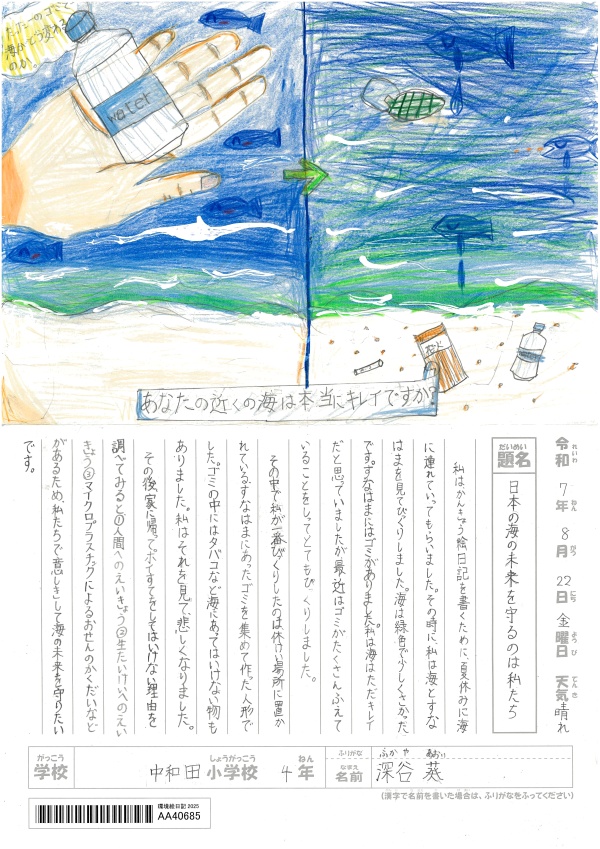 たった一つのゴミで
海はどう変わる
のか。
water
あなたの近くの海は本当にキレイですか?
令和7年8月22日金曜日 天気 晴れ
れいわ ねん がつ にち ようび てんき
だいめい
題名 日本の海の未来を守るのは私たち
私はかんきょう絵日記を書くために、夏休みに海
に連れていってもらいました。その時に、私は海とすな
はまを見てびっくりしました。海は緑色で少しくさかった
です。すなはまにはゴミがありました。私は海はただキレイ
だと思ていましたが最近はゴミがたくさんふえて
いることをしってとてもびっくりしました。
その中で私が一番びっくりしたのは休けい場所に置か
れているすなはまにあったゴミを集めて作た人形で
した。ゴミの中にはタバコなど海にあってはいけない物も
ありました。私はそれを見て、悲しくなりました。
その後、家に帰って、ポイすてをしてはいけない理由を
調べてみると①人間へのえいきょう②生たいけいへのえい
きょう③マイクロプラスチックによるおせんのかくだいなど
があるため、私たちで意しきして海の未来を守りたい
です。
がっこう
学校 中和田 小学校 4年
しょうがっこう ねん
ふりがな ふかや あおい
なまえ
名前 深谷 葵
(漢字で名前を書いた場合は、ふりがなをふってください)
環境絵日記 2025
AA40685